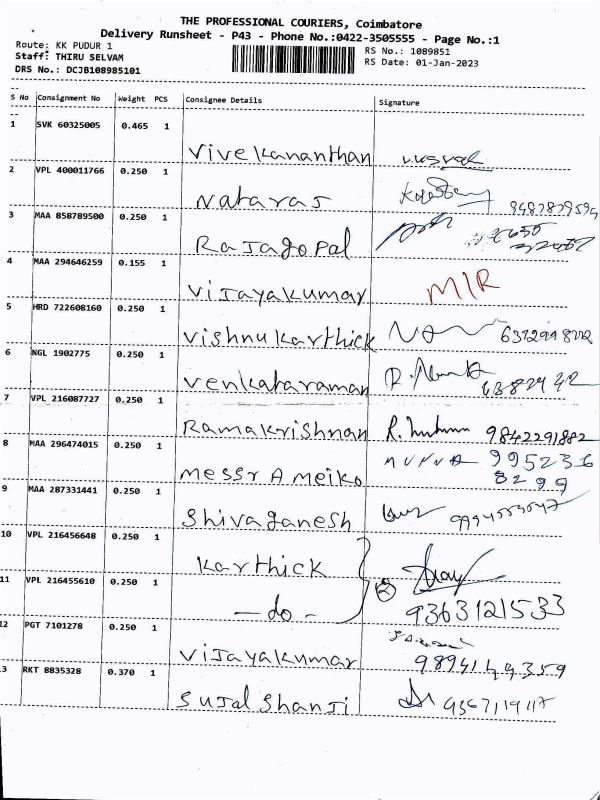 THE PROFESSIONAL COURIERS, Coimbatore
Delivery Runsheet - P43 - Phone No.:0422-3505555 - Page No.:1
Route: KK PUDUR 1 RS No.: 1089851
Staff: THIRU SELVAM RS Date: 01-Jan-2023
DRS No.: DCJB108985101
S No Consignment No Weight PCS Consignee Details Signature
1 SVK 60325005 0.465 1
Vivekananthan
2 VPL 400011766 0.250 1
Nataras
3 MAA 858789500 0.250 1
Rajagopal
4 MAA 294646259 0.155 1
Vijayakumar M/R
5 HRD 722608160 0.250 1
Vishnukarthick
6 NGL 1902775 0.250 1
Venkataraman
7 VPL 216087727 0.250 1
Ramakrishnan 9842291882
8 MAA 296474015 0.250 1
995236
Messr A Meiko 8299
9 MAA 287331441 0.250 1
Shivaganesh
10 VPL 216456648 0.250 1
Karthick
11 VPL 216455610 0.250 1 2
- do - 9363121533
12 PGT 7101278 0.250 1
Vijayakumar 9894149359
13 RKT 8835328 0.370 1
Sujal Shanji